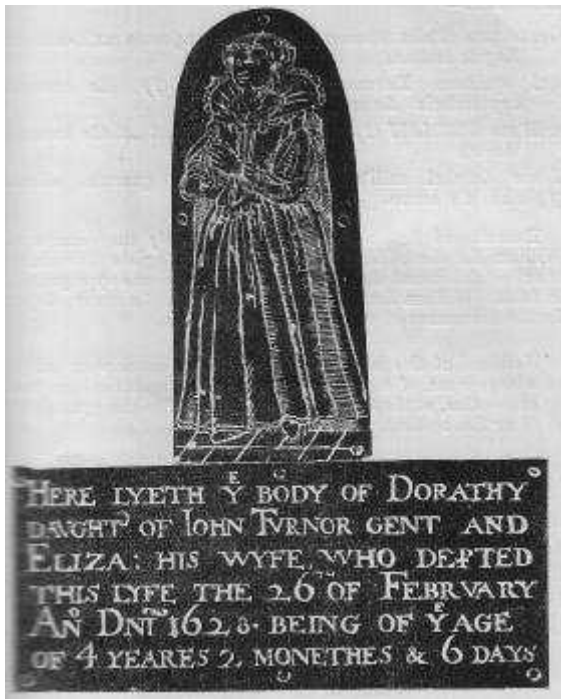 HERE LYETH Yᴱ BODY OF DORATHY
DAVGHTʳ OF IOHN TVRNOR GENT AND
ELIZA: HIS WYFE, WHO DEPTED
THIS LYFE THE 26ᵀᴴ OF FEBRVARY
ANº DNI 1628. BEING OF Yᴱ AGE
OF 4 YEARES 2, MONETHES & 6 DAYS